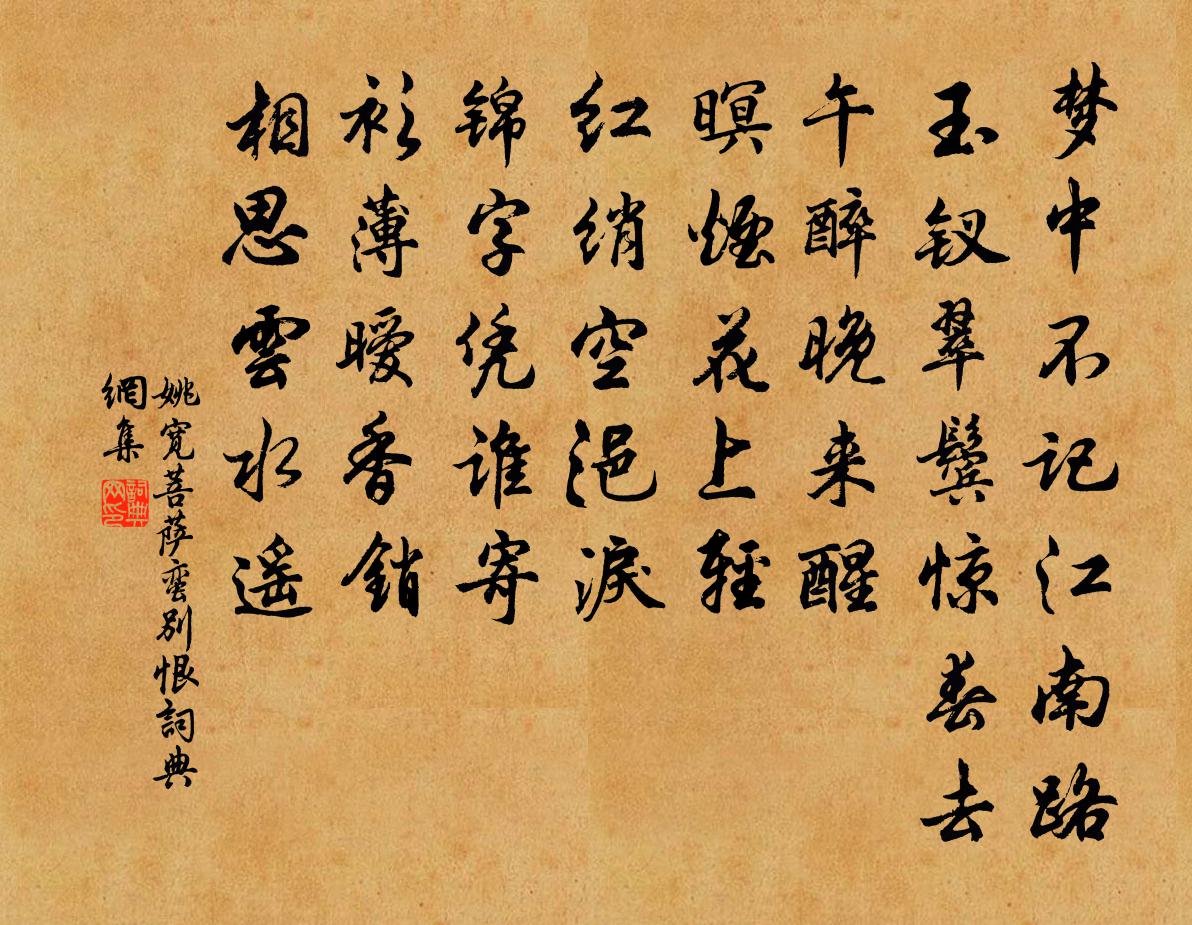 梦中不记江南路
玉钗翠鬓惊春去
午醉晚来醒
暝烟花上轻
红绡空浥淚
锦字凭谁寄
衫薄暧香銷
相思雲水遥
姚宽菩萨蛮别恨詞典
網集
詞典
网印